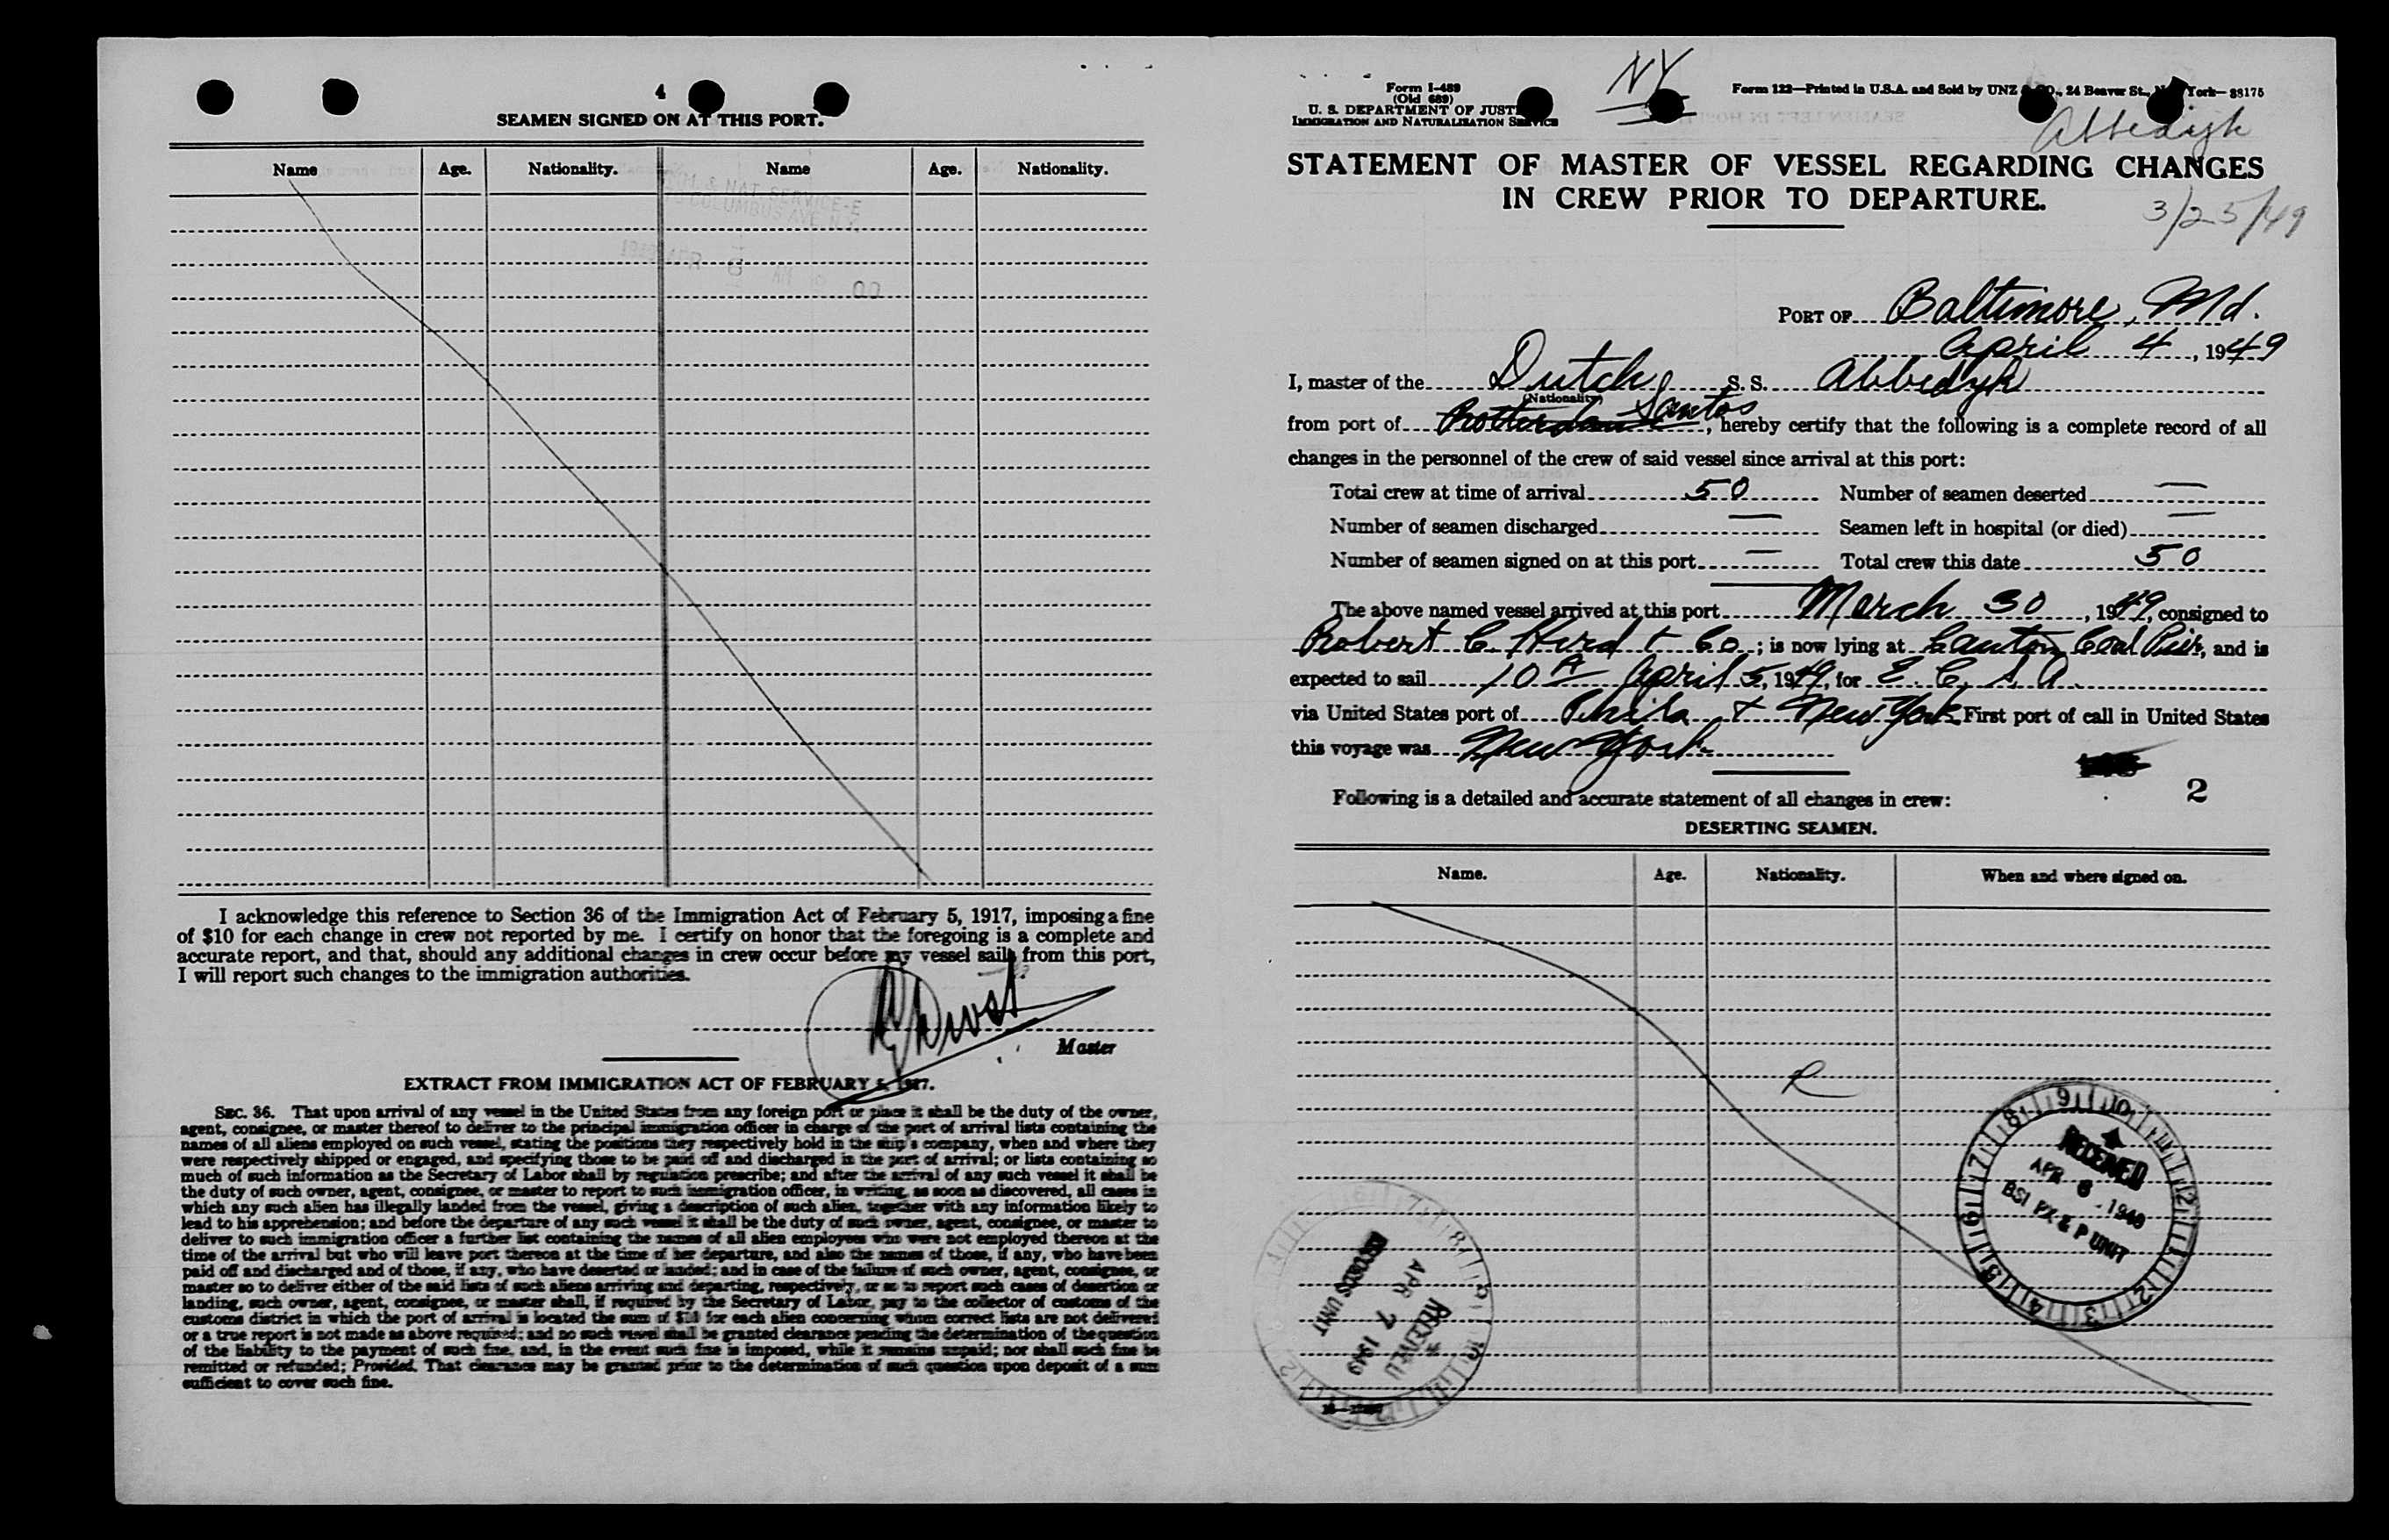 4
SEAMEN SIGNED ON AT THIS PORT.
Name Age. Nationality. Name Age. Nationality.
& NAT. SERVICE-E
COLUMBUS AVE N.Y.
APR 6 AM 00
I acknowledge this reference to Section 36 of the Immigration Act of February 5, 1917, imposing a fine
of $10 for each change in crew not reported by me. I certify on honor that the foregoing is a complete and
accurate report, and that, should any additional changes in crew occur before my vessel sails from this port,
I will report such changes to the immigration authorities.
Master
EXTRACT FROM IMMIGRATION ACT OF FEBRUARY 5, 1917.
SEC. 36. That upon arrival of any vessel in the United States from any foreign port or place it shall be the duty of the owner,
agent, consignee, or master thereof to deliver to the principal immigration officer in charge of the port of arrival lists containing the
names of all aliens employed on such vessel, stating the positions they respectively hold in the ship's company, when and where they
were respectively shipped or engaged, and specifying those to be paid off and discharged in the port of arrival; or lists containing so
much of such information as the Secretary of Labor shall by regulation prescribe; and after the arrival of any such vessel it shall be
the duty of such owner, agent, consignee, or master to report to such immigration officer, in writing, as soon as discovered, all cases in
which any such alien has illegally landed from the vessel, giving a description of such alien, together with any information likely to
lead to his apprehension; and before the departure of any such vessel it shall be the duty of such owner, agent, consignee, or master to
deliver to such immigration officer a further list containing the names of all alien employees who were not employed thereon at the
time of the arrival but who will leave port thereon at the time of her departure, and also the names of those, if any, who have been
paid off and discharged and of those, if any, who have deserted or landed; and in case of the failure of such owner, agent, consignee, or
master so to deliver either of the said lists of such aliens arriving and departing, respectively, or so to report such cases of desertion or
landing, such owner, agent, consignee, or master shall, if required by the Secretary of Labor, pay to the collector of customs of the
customs district in which the port of arrival is located the sum of $10 for each alien concerning whom correct lists are not delivered
or a true report is not made as above required; and no such vessel shall be granted clearance pending the determination of the question
of the liability to the payment of such fine, and, in the event such fine is imposed, while it remains unpaid; nor shall such fine be
remitted or refunded; Provided, That clearance may be granted prior to the determination of such question upon deposit of a sum
sufficient to cover such fine.
Form I-489
(Old 689)
U. S. DEPARTMENT OF JUST
IMMIGRATION AND NATURALIZATION SERVICE
NY
Form 122—Printed in U.S.A. and Sold by UNZ & CO., 24 Beaver St., New York—83175
Abbedijk
STATEMENT OF MASTER OF VESSEL REGARDING CHANGES
IN CREW PRIOR TO DEPARTURE.
3/25/49
PORT OF Baltimore, Md.
April 4, 1949
I, master of the Dutch S. S. Abbedyk
(Nationality)
from port of Rotterdam Santos, hereby certify that the following is a complete record of all
changes in the personnel of the crew of said vessel since arrival at this port:
Total crew at time of arrival 50 Number of seamen deserted —
Number of seamen discharged — Seamen left in hospital (or died) —
Number of seamen signed on at this port — Total crew this date 50
The above named vessel arrived at this port March 30, 1949, consigned to
Robert C. Herd & Co; is now lying at Canton Coal Pier, and is
expected to sail 10 A April 5, 1949, for E. C. S. A.
via United States port of Phila & New York First port of call in United States
this voyage was New York
2
Following is a detailed and accurate statement of all changes in crew:
DESERTING SEAMEN.
Name. Age. Nationality. When and where signed on.
R
RECEIVED
APR 6 - 1949
BSI PX & P UNIT
RECORDS UNIT
APR 7 1949
RECEIVED